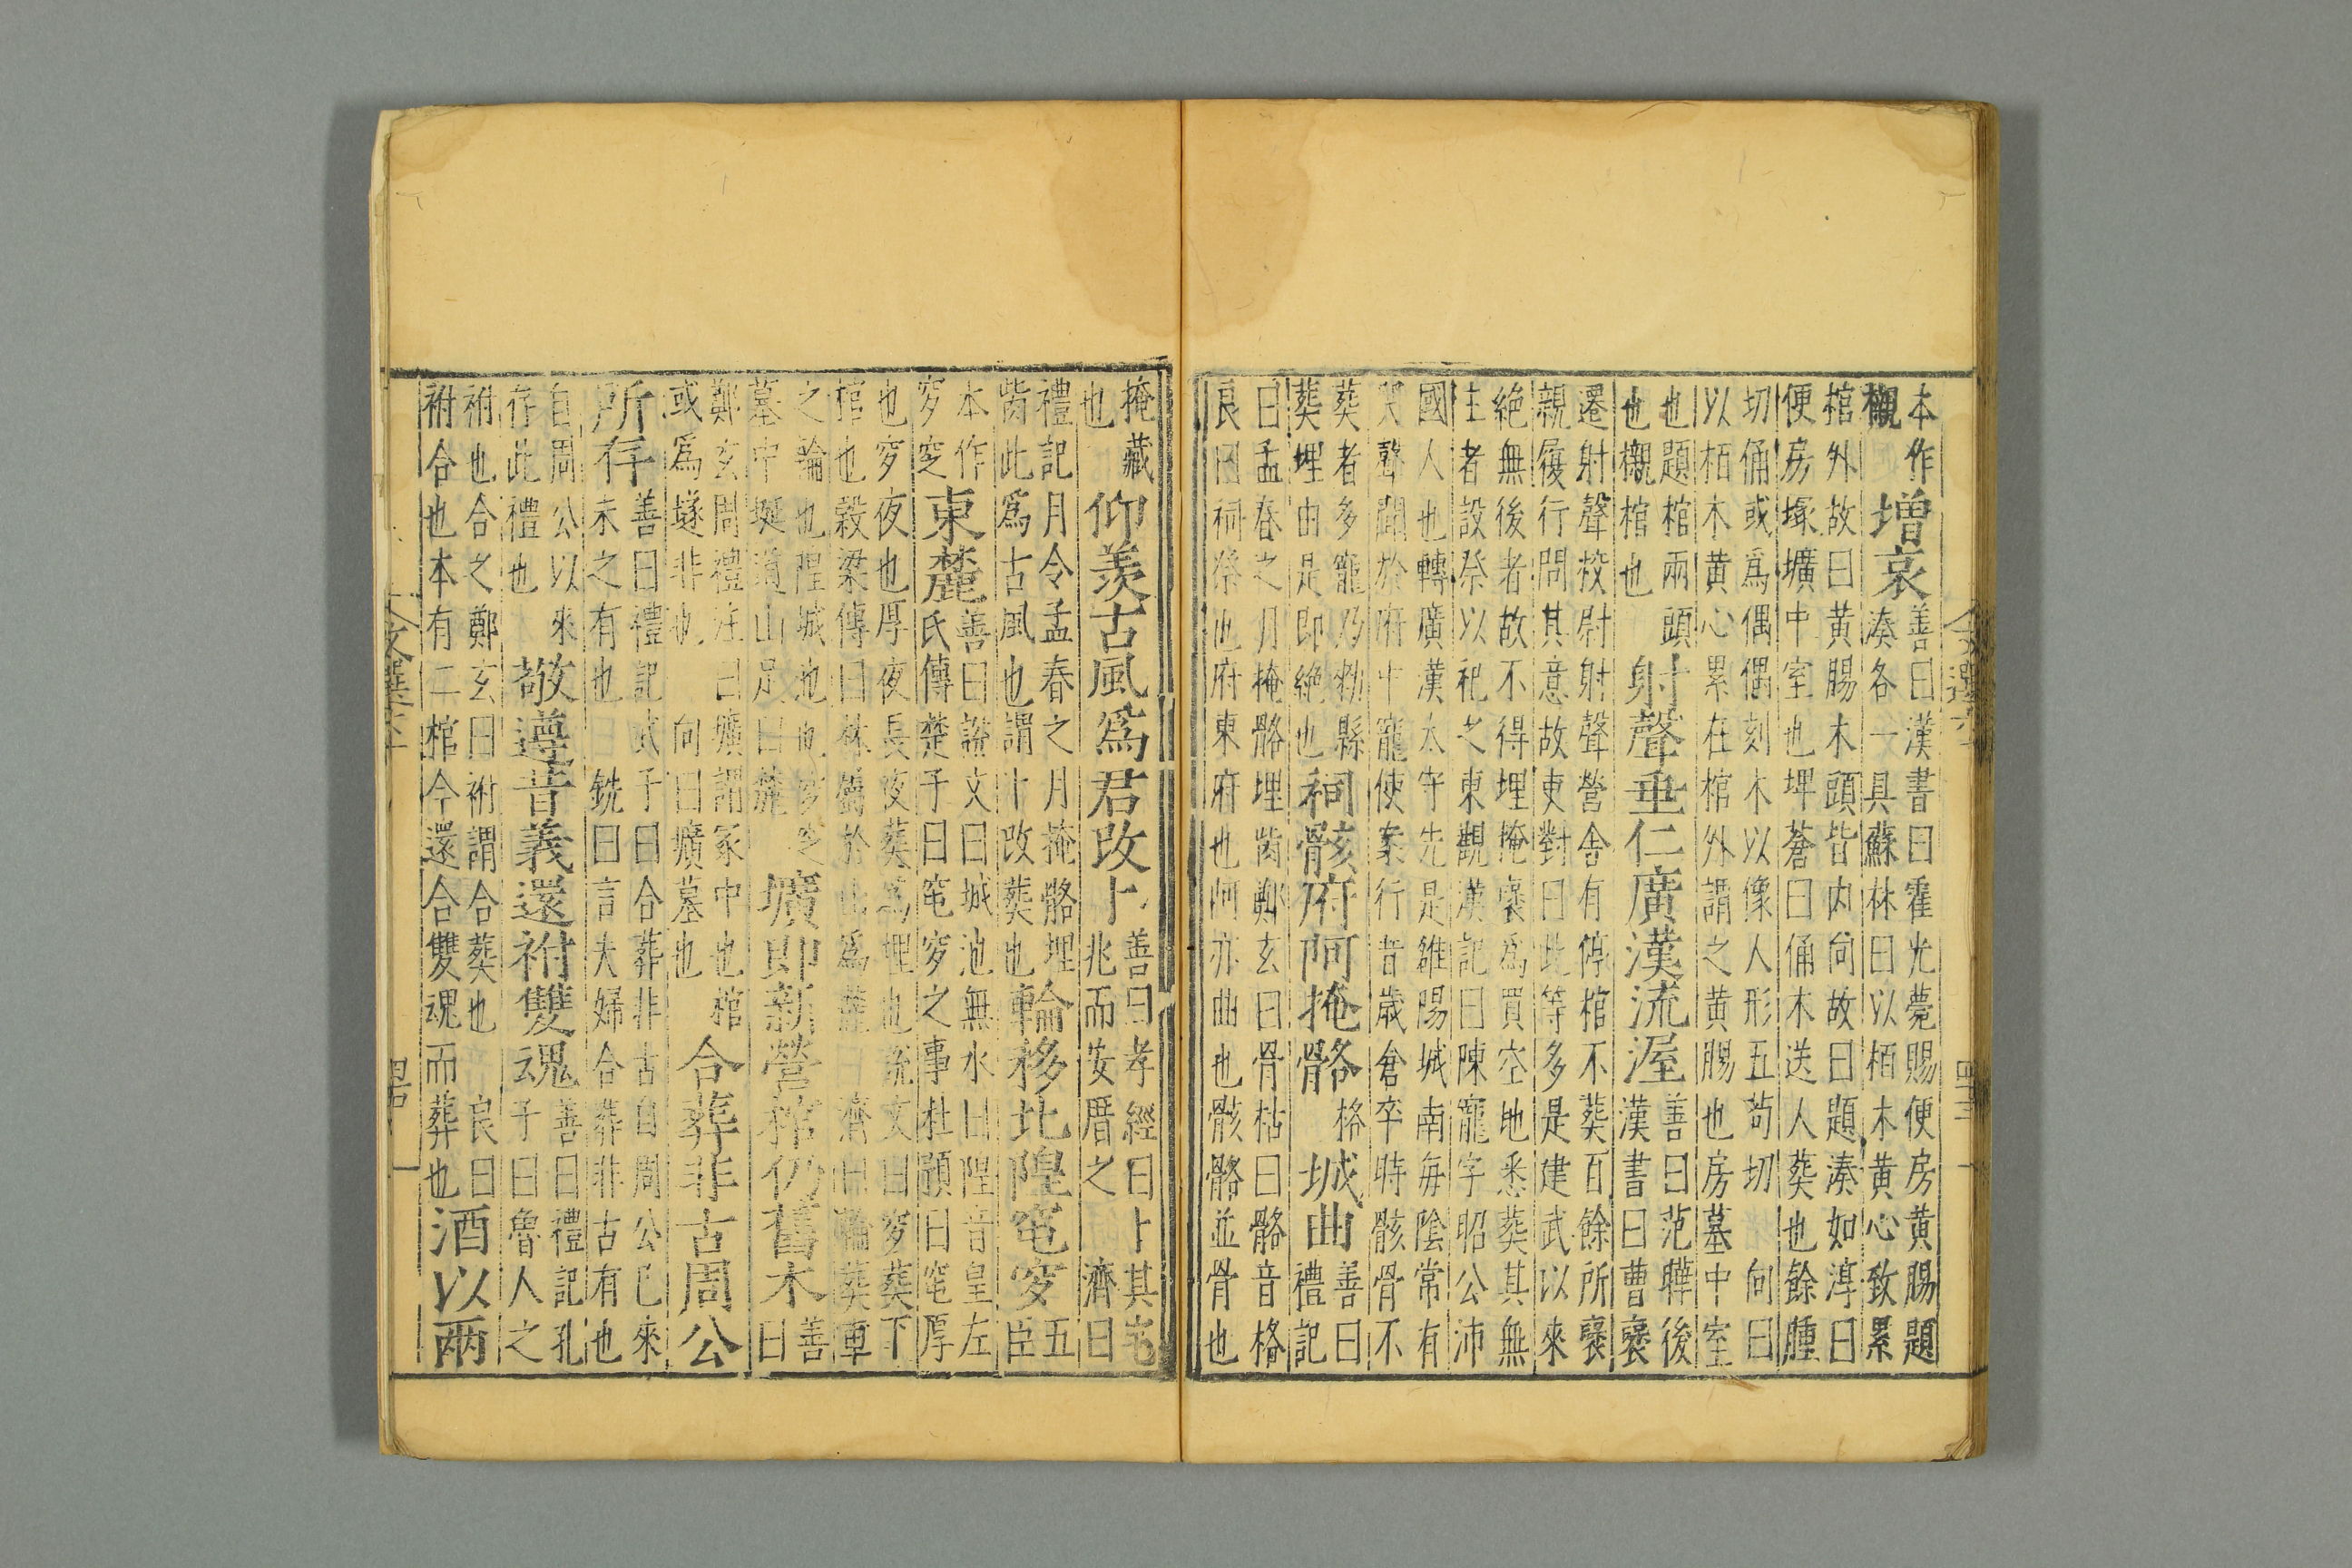 本作
櫬
增哀
善曰漢書曰霍光薨賜便房黄腸題
湊各一具蘇林曰以栢木黄心致累
棺外故曰黄腸木頭皆内向故曰題湊如淳曰
便房塚壙中室也埤蒼曰俑木送人葬也餘腫
切俑或爲偶偶刻木以像人形五苟切 向曰
以栢木黄心累在棺外謂之黄腸也房墓中室
也題棺兩頭
也櫬棺也
射聲垂仁廣漢流渥
善曰范曄後
漢書曰曹褒
遷射聲校尉射聲營舍有停棺不葬百餘所褒
親履行問其意故吏對曰此等多是建武以來
絶無後者故不得埋掩褒爲買空地悉葬其無
主者設祭以祀之東觀漢記曰陳寵字昭公沛
國人也轉廣漢太守先是雒陽城南每陰常有
哭聲聞於府中寵使案行昔歲倉卒時骸骨不
葬者多寵乃勑縣
葬埋由是即絶也
祠骸府阿掩骼
格
城曲
善曰
禮記
曰孟春之月掩骼埋胔鄭玄曰骨枯曰骼音格
良曰祠祭也府東府也阿亦曲也骸骼並骨也
掩藏
也
仰羨古風爲君改卜
善曰孝經曰卜其宅
兆而安厝之 濟曰
禮記月令孟春之月掩骼埋
胔此爲古風也謂卜改葬也
輪移北隍窀穸
五
臣
本作
穸窆
東麓
善曰說文曰城池無水曰隍音皇左
氏傳楚子曰窀穸之事杜預曰窀厚
也穸夜也厚夜長夜葬爲埋也說文曰穸葬下
棺也穀梁傳曰林屬於山爲麓 濟曰輪葬車
之輪也隍城池也穸窆
墓中埏道山足曰麓
壙即新營棺仍舊木
善
曰
鄭玄周禮注曰壙謂冢中也棺
或爲墜非也 向曰壙墓也
合葬非古周公
所存
善曰禮記武子曰合葬非古自周公已來
未之有也 銑曰言夫婦合葬非古有也
自周公以來
存此禮也
敬遵昔義還祔雙魂
善曰禮記孔
子曰魯人之
祔也合之鄭玄曰祔謂合葬也 良曰
祔合也本有二棺今還合雙魂而葬也
酒以兩